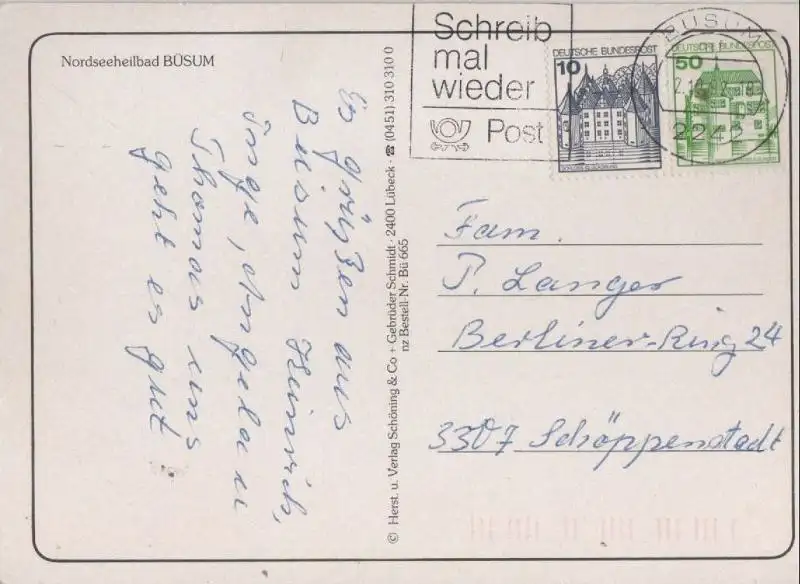 Nordseeheilbad BÜSUM
Es grüßen aus
Büsum Heinrich,
Inge, Angela u
Thomas uns
geht es gut
© Herst. u. Verlag Schöning & Co + Gebrüder Schmidt · 2400 Lübeck · ☎ (04 51) 310 310 0
nz Bestell-Nr. Bü 665
Schreib
mal
wieder
Post
DEUTSCHE BUNDESPOST
10
DEUTSCHE BUNDESPOST
50
BÜSUM
Fam.
P. Langer
Berliner-Ring 24
3307 Schöppenstadt